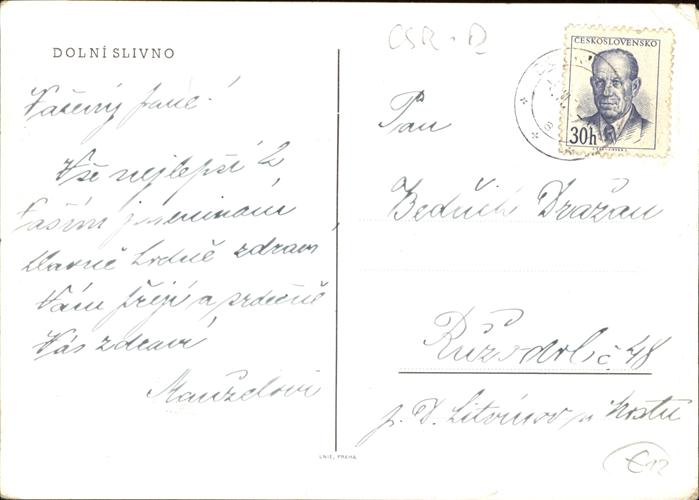 DOLNÍ SLIVNO
Vážený pane!
Vše nejlepší k
Vašim jmeninám,
hlavně hodně zdraví
Vám přejí a srdečně
Vás zdraví
Manželovi
ČSR - D
ČESKOSLOVENSKO
30h
Pan
Bedřich Dražan
Růžodol č. 48
p. D. Litvínov u Mostu
UNIE, PRAHA
€12